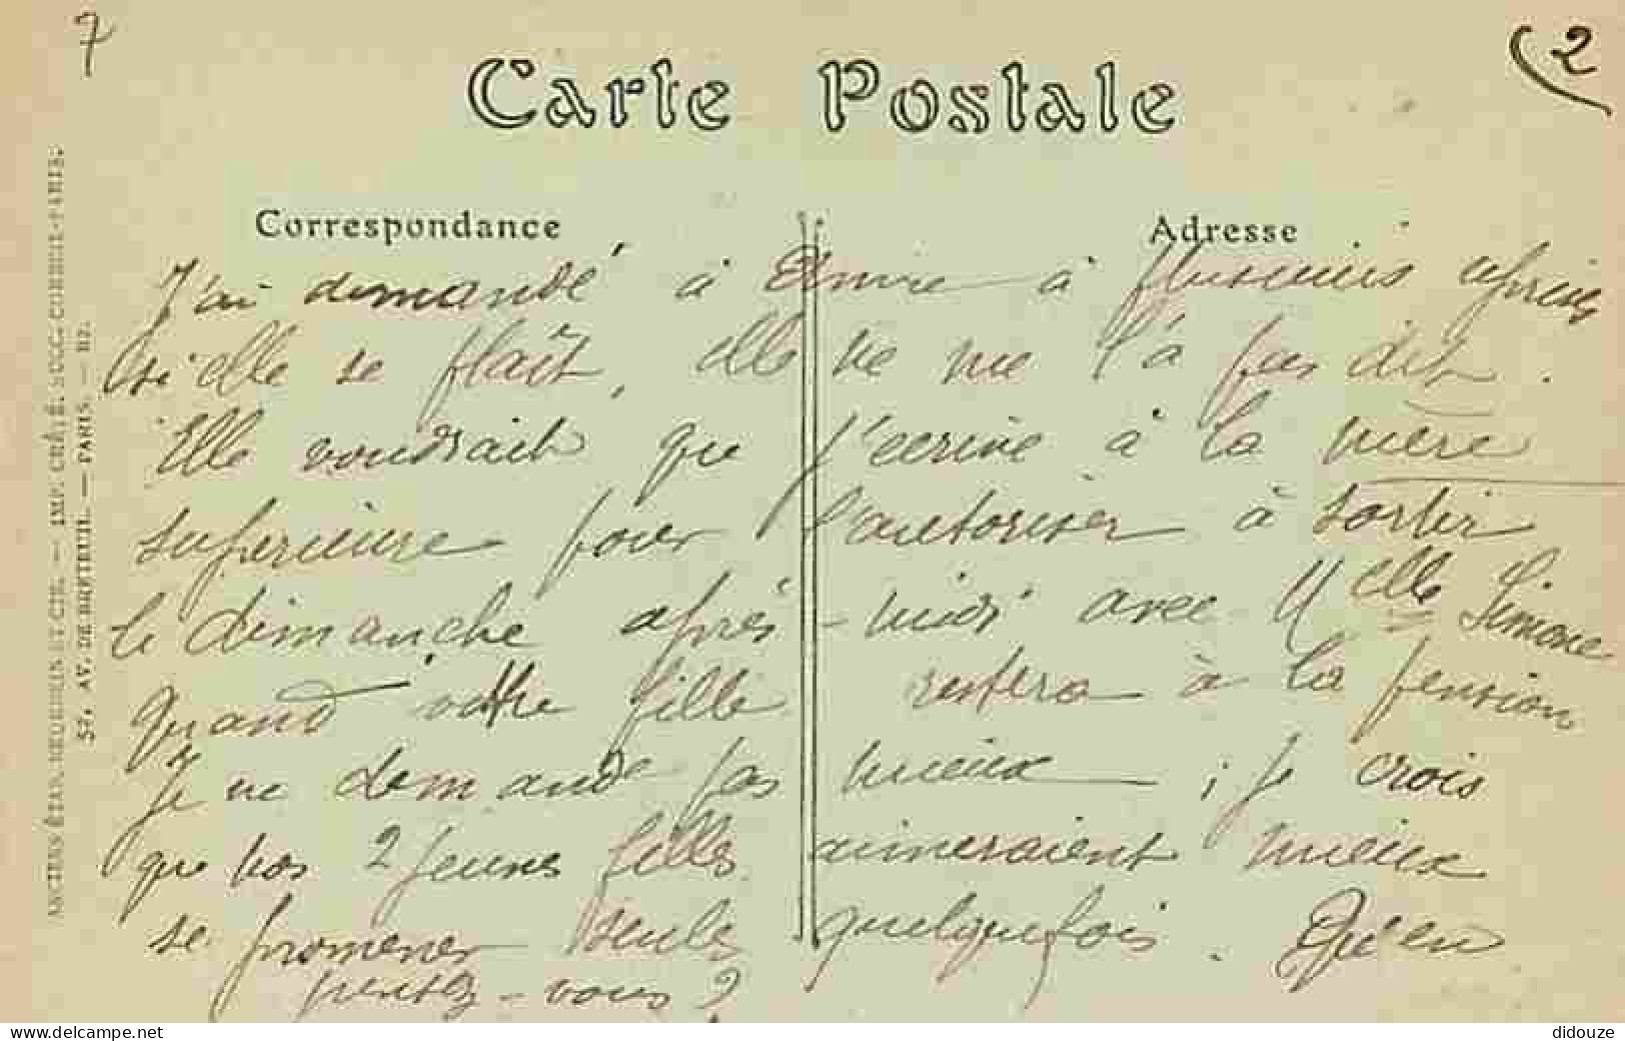 7
2
Carte Postale
Correspondance
Adresse
ANCIENS ÉTAB. NEURDEIN ET CIE. — IMP. CRÉTÉ. SUCC. CORBEIL-PARIS.
52, AV. DE BRETEUIL. — PARIS. — 112.
J'ai demandé à à plusieurs reprises
si elle se plaît, elle ne me l'a pas dit.
Elle voudrait que j'écrive à la mère
supérieure pour l'autoriser à sortir
le dimanche après-midi avec Melle Simone
quand votre fille restera à la pension
Je ne demande pas mieux ; je crois
que nos 2 jeunes filles aimeraient mieux
se promener seules quelquefois. Qu'en
pensez-vous ?
www.delcampe.net
didouze